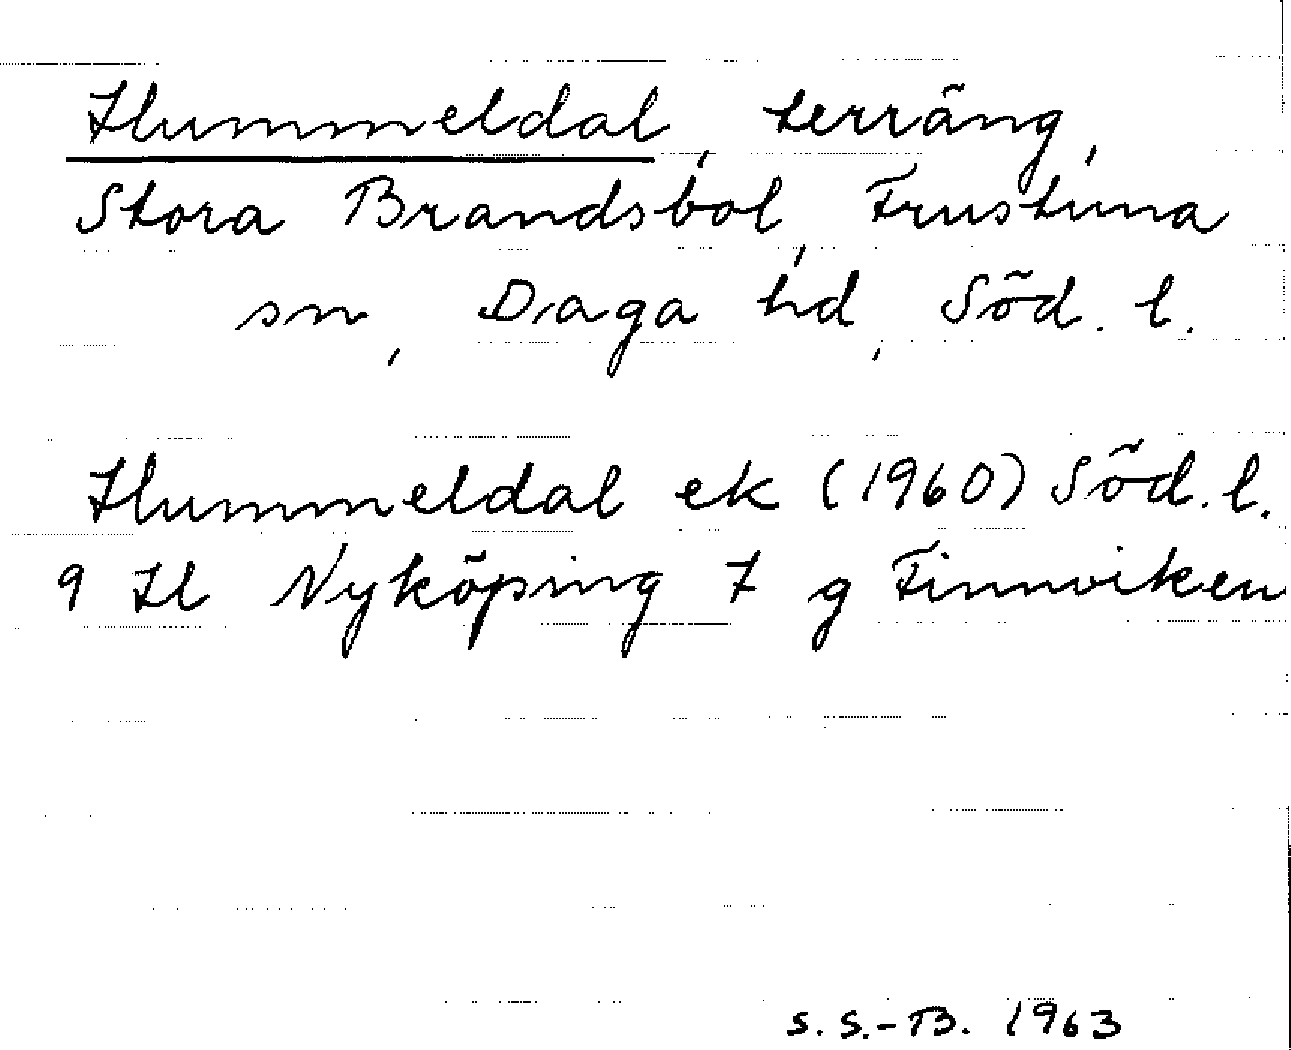 Hummeldal, terräng,
Stora Brandsbol, Frustuna
sn, Daga hd, Söd. l.
Hummeldal ek (1960) Söd. l.
9 H Nyköping 7 g Finnviken
S. S.-B. 1963